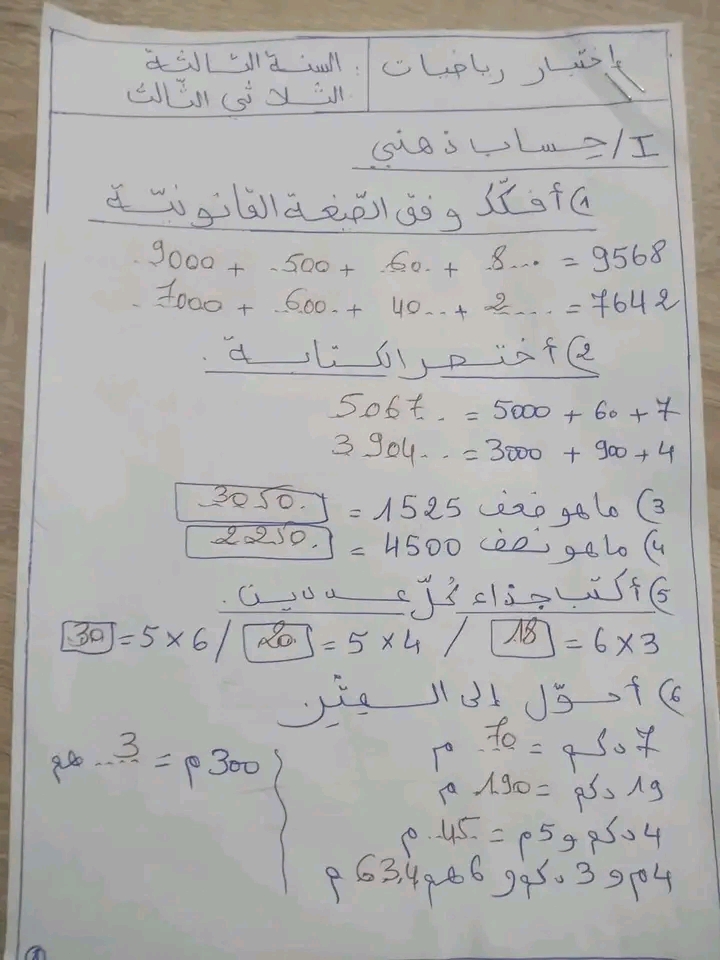 إختبار رياضيات
السنة الثالثة
الثلاثي الثالث
I/ حساب ذهني
1) أفكّك وفق الصّغة القانونيّة
9000 + 500 + 60 + 8 = 9568
7000 + 600 + 40 + 2 = 7642
2) أختصر الكتابة.
5067 = 5000 + 60 + 7
3904 = 3000 + 900 + 4
3) ماهو ضعف 1525 = 3050
4) ماهو نصف 4500 = 2250
5) أكتب جذاء كلّ عددين.
30 = 5 × 6 / 20 = 5 × 4 / 18 = 6 × 3
6) أحوّل إلى
7 دكم = 70 م
300 م = 3 هم
19 دكم = 190 م
4 دكم و 5 م = 45 م
4 م و 3 دكم و 6 هم 634 م